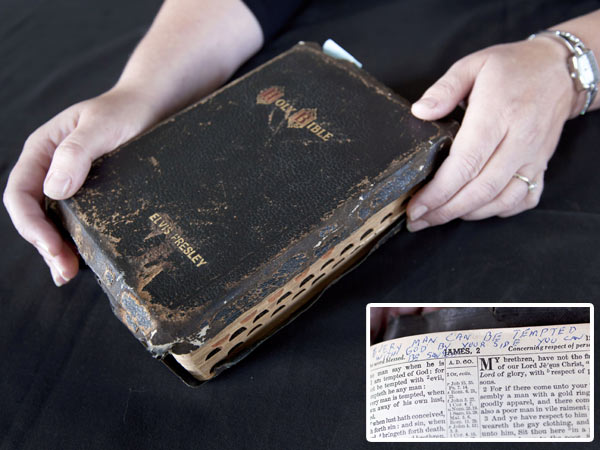 HOLY BIBLE
ELVIS PRESLEY
EVERY MAN CAN BE TEMPTED
GOD BY YOUR SIDE YOU CAN
JAMES, 2
Concerning respect of
blessed.
man say when he is
am tempted of God: for
be tempted with evil,
tempteth he any man:
every man is tempted, when
n away of his own lust,
when lust hath conceived,
forth sin: and sin, when
bringeth forth death.
A. D. 60.
MY brethren, have not the
of our Lord Jē'ṣus Christ,
Lord of glory, with respect of
sons.
2 For if there come unto your
sembly a man with a gold ring
goodly apparel, and there com
also a poor man in vile raiment
3 And ye have respect to him
weareth the gay clothing, and
unto him, Sit thou here